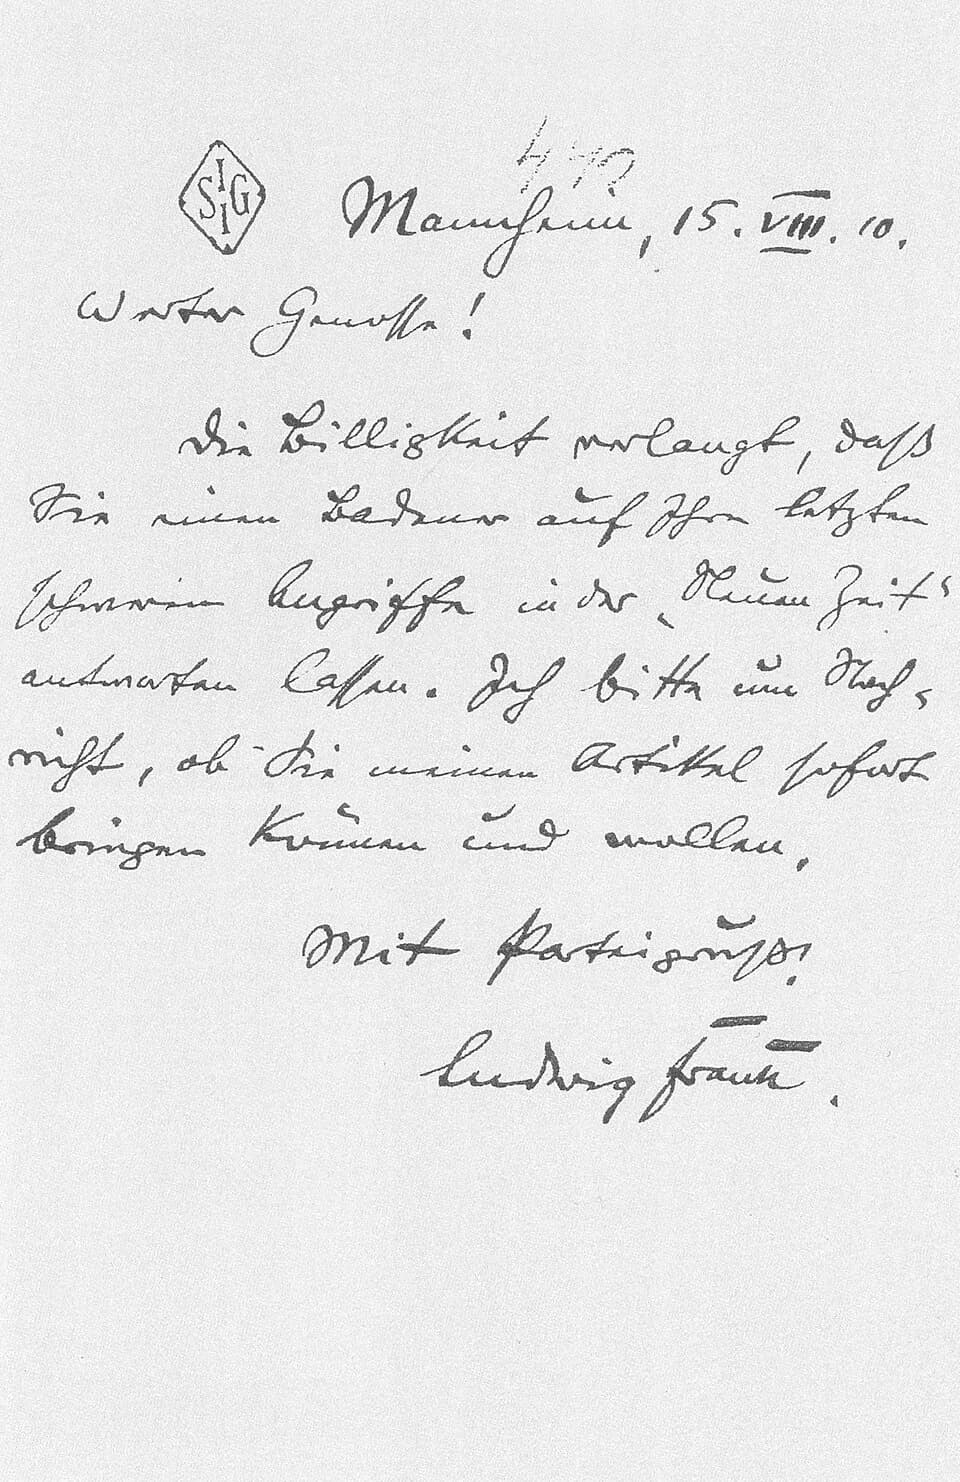 SIGI
Mannheim, 15. VIII. 10.
Werter Genosse!
Die Billigkeit verlangt, daß
Sie einen Badener auf Ihre letzten
schweren Angriffe in der „Neuen Zeit“
antworten lassen. Ich bitte um Nach-
richt, ob Sie meinen Artikel sofort
bringen können und wollen.
Mit Parteigruß!
Ludwig Frank.